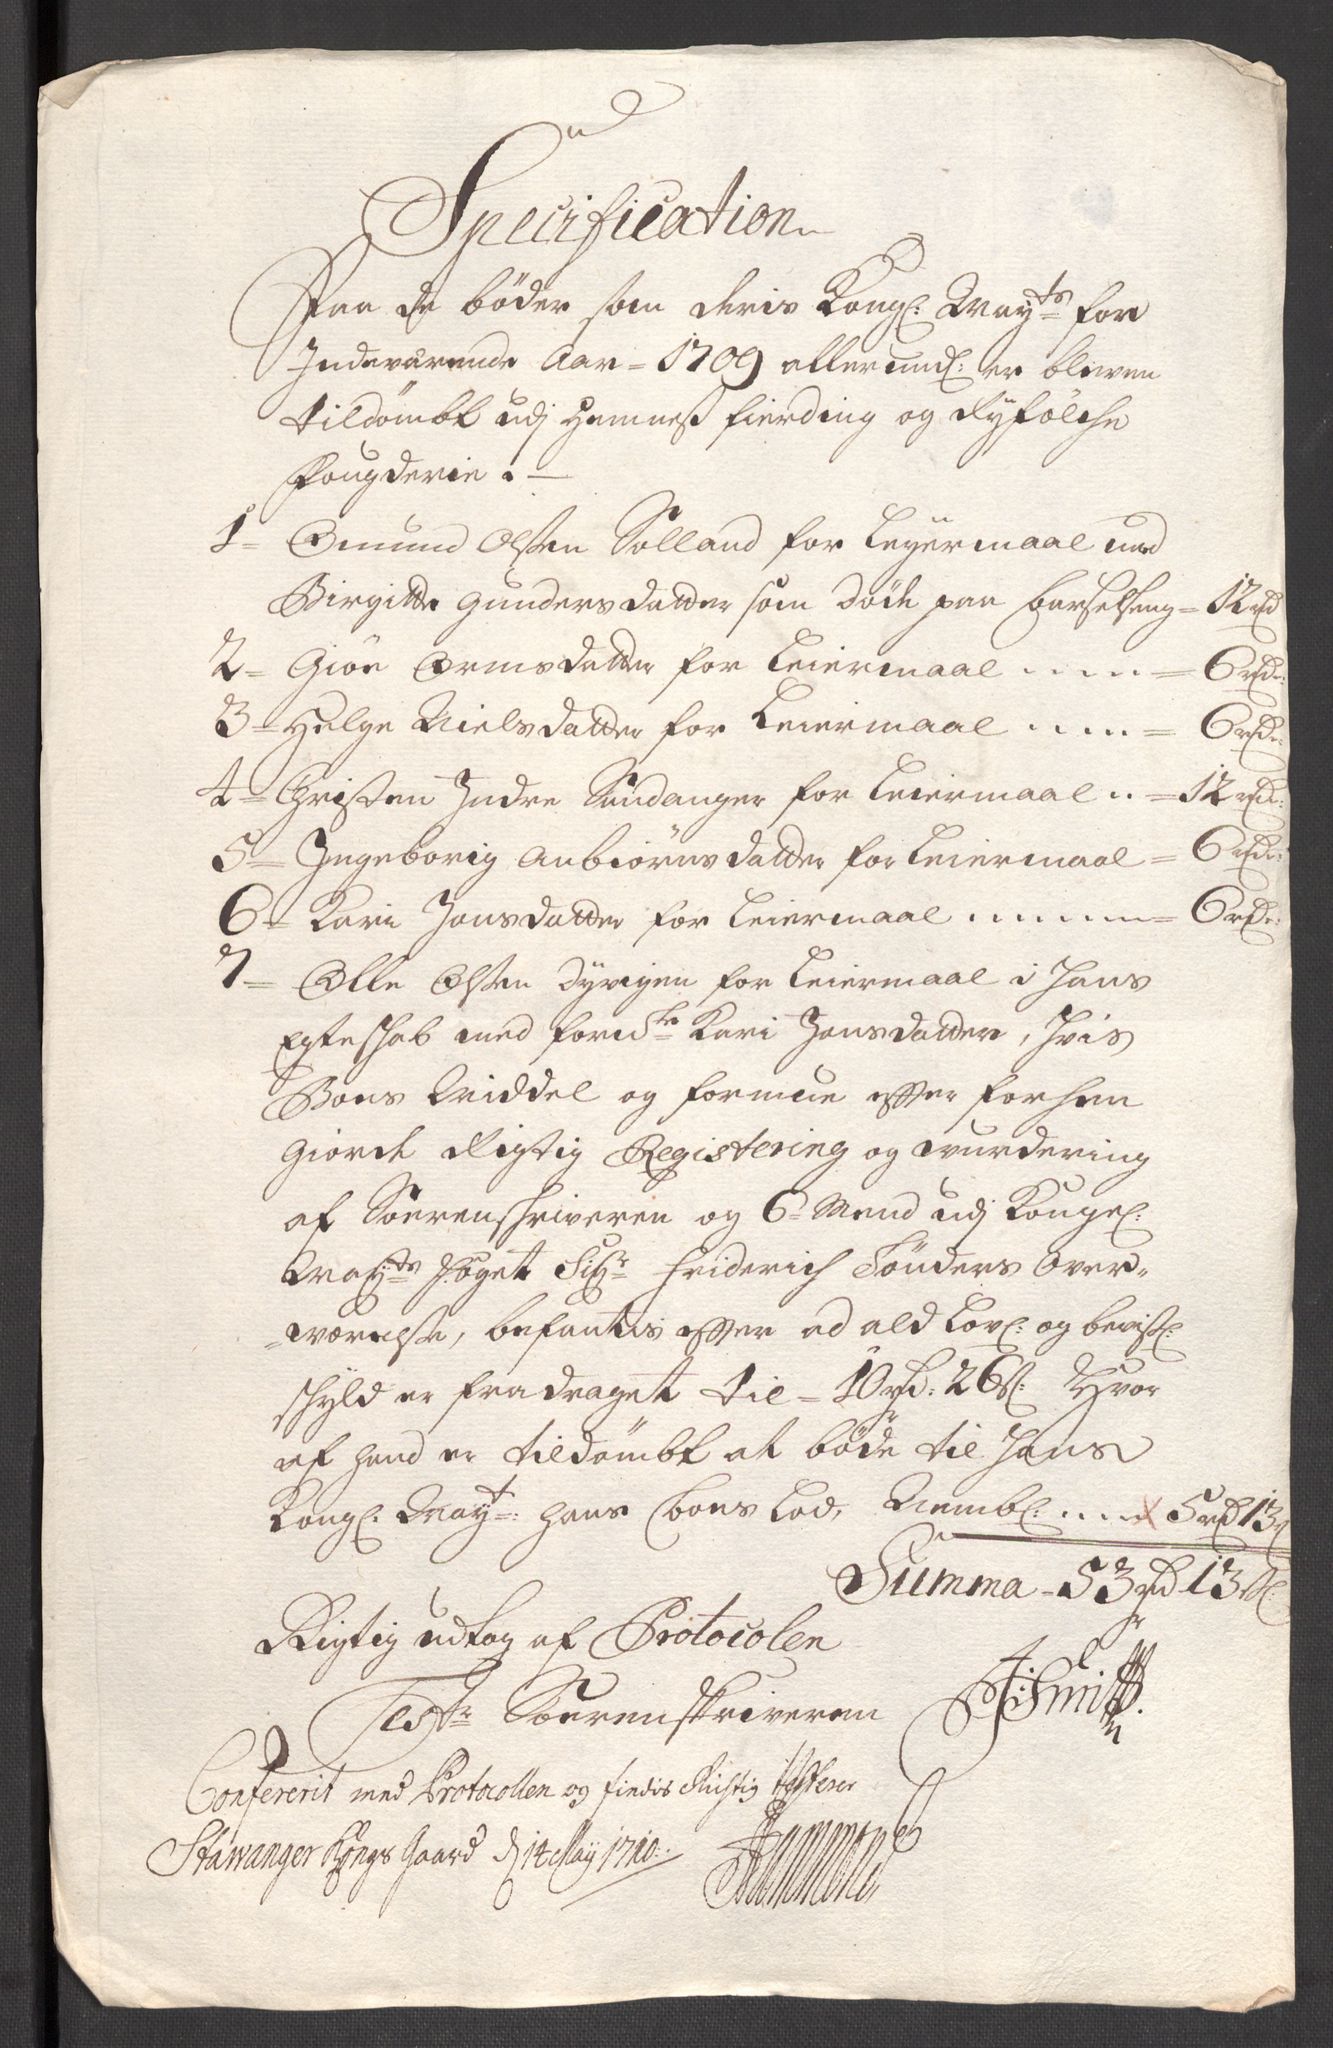 Specification
Paa de böder som deris Kongl: Mayts for
Indeværende Aar = 1709 allerund: er bleven
tildömbt udj Hemnes fierding og Ryfölche
Fougderie : —
1 = Omund Olsen Solland for Leyermaal med
Birgitte Gundersdatter som döde paa Barselseng = 12 rd
2 = Giöe Ormsdatter for Leiermaal ..... = 6 rd:
3 = Helge Nielsdatter for Leiermaal ..... = 6 rd:
4 = Christen Indre Sandanger for Leiermaal .. = 12 rd:
5 = Ingeborig Anbiörnsdatter for Leiermaal = 6 rd:
6 = Kari Jonsdatter for Leiermaal ....... = 6 rd:
7 = Olle Olsen Dyrigen for Leiermaal i hans
Egteschab med formelte Kari Jonsdatter, hvis
Boens Middel og formue efter forhen
Giorde Rigtig Registering og wurdering
af Soerenschriveren og 6 Mend udj Kongel:
Mayts foget Sigr Friderich Tönders Over-
=værelse, befantis efter ad ald Lovl: og bevisl:
schyld er fradraget til = 10 rd: 26 s: Hvor
af hand er tildömbt at böde til Hans
Kongl: Mayt: hans Boens Lod, Nembl: .... 5 rd 13 s
Summa = 53 rd 13 s:
Rigtig udtog af Protocolen
Test: Soerenskriveren
Smith
Confererit med Protocollen og findis Rigtig testerer
Stawanger Kongs Gaard d 14 May 1710.
Hammond